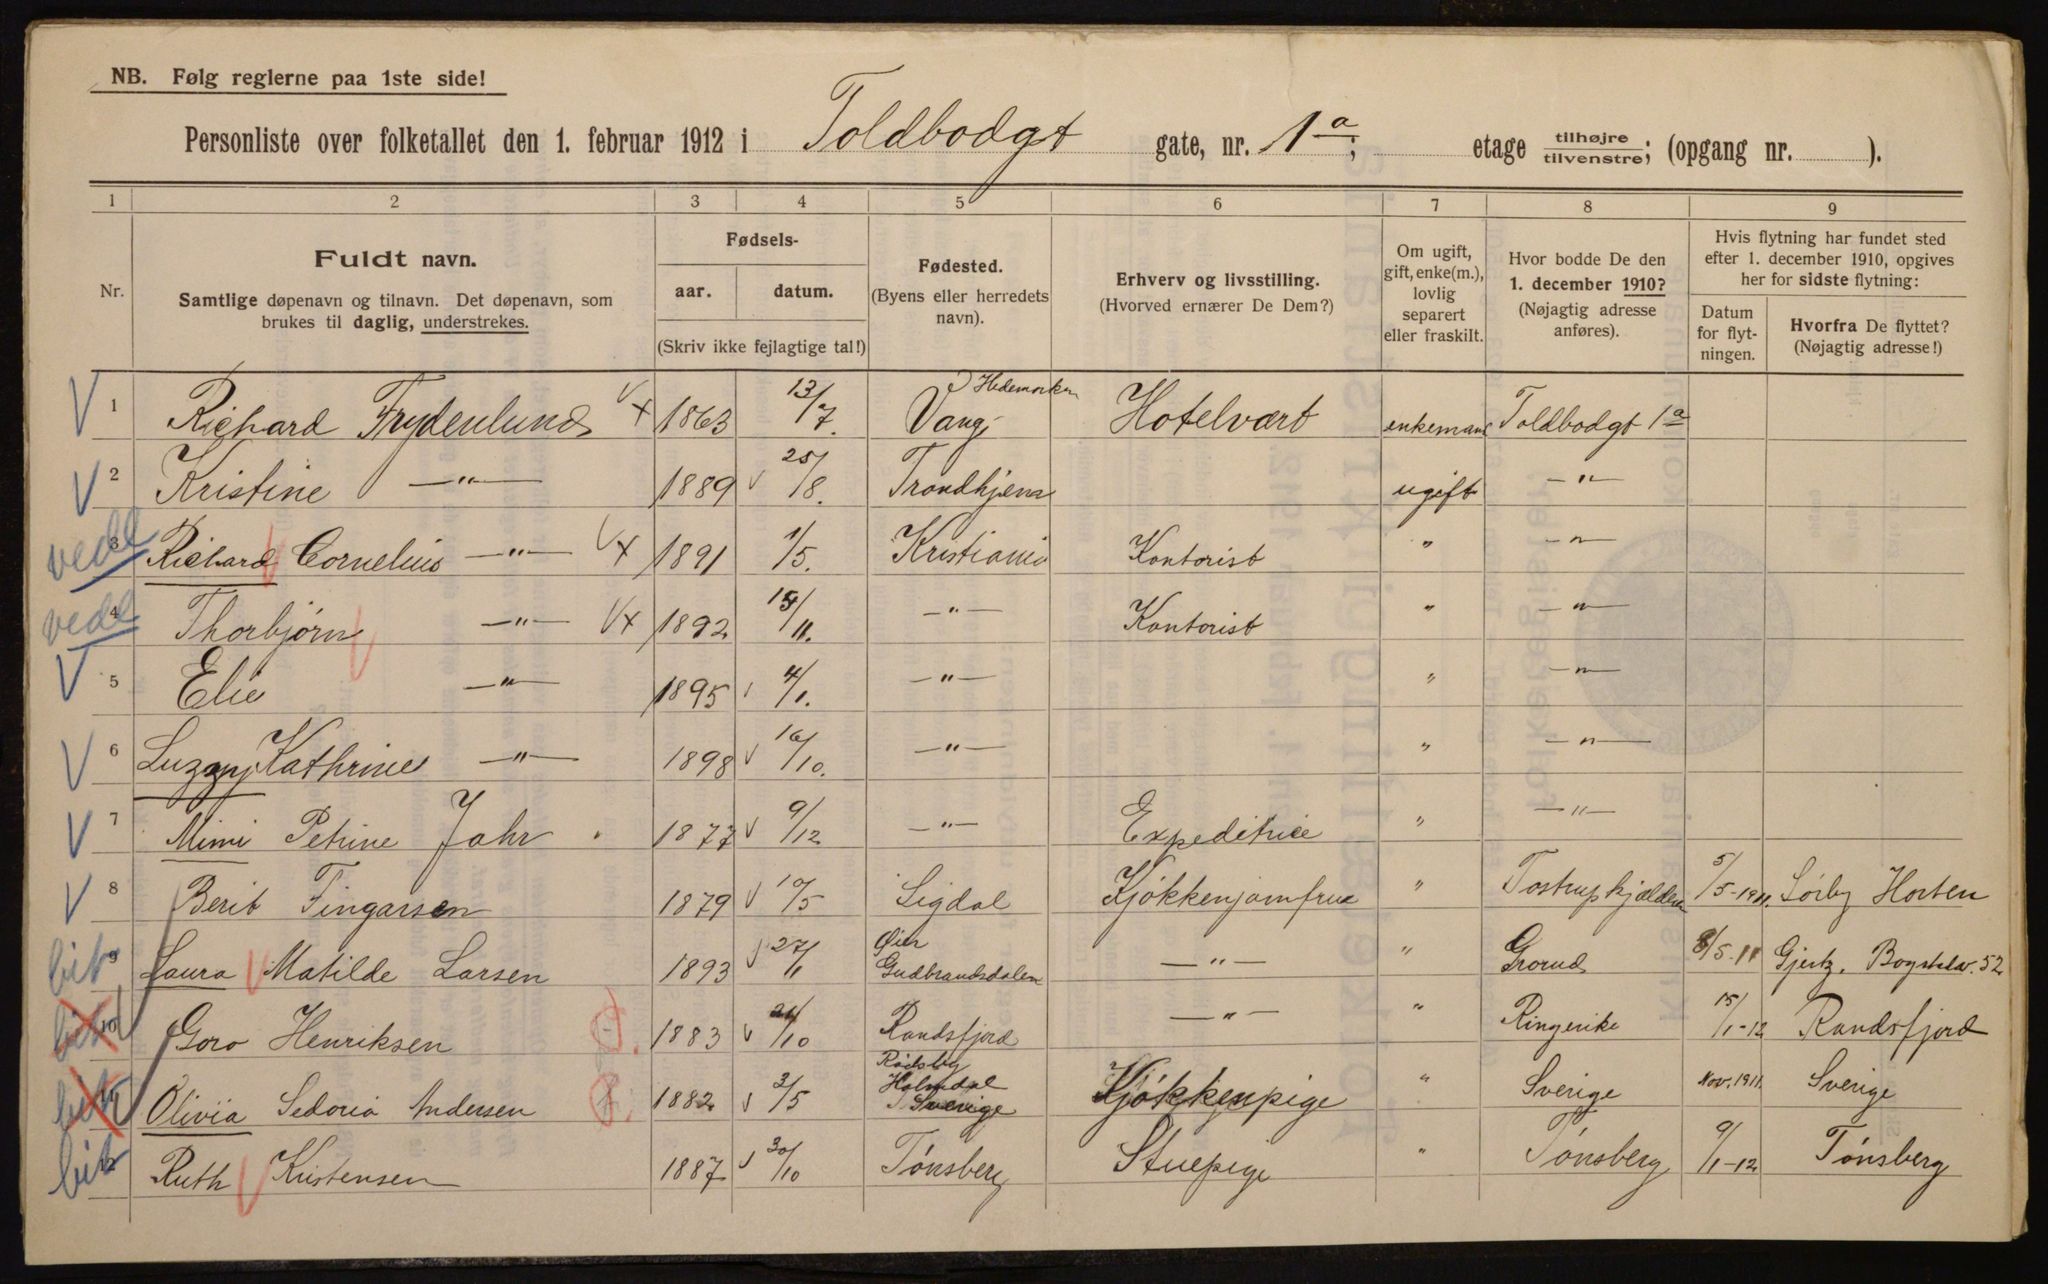 NB. Følg reglerne paa 1ste side!
Personliste over folketallet den 1. februar 1912 i Toldbodgt gate, nr. 1a; etage tilhøjre/tilvenstre; (opgang nr. ).
1 2 3 4 5 6 7 8 9
Nr.
Fuldt navn.
Samtlige døpenavn og tilnavn. Det døpenavn, som
brukes til daglig, understrekes.
Fødsels-
aar. datum.
(Skriv ikke fejlagtige tal!)
Fødested.
(Byens eller herredets
navn).
Erhverv og livsstilling.
(Hvorved ernærer De Dem?)
Om ugift,
gift, enke(m.),
lovlig
separert
eller fraskilt.
Hvor bodde De den
1. december 1910?
(Nøjagtig adresse
anføres).
Hvis flytning har fundet sted
efter 1. december 1910, opgives
her for sidste flytning:
Datum
for flyt-
ningen.
Hvorfra De flyttet?
(Nøjagtig adresse!)
V 1 Richard Frydenlund V x 1863 13/7. Vang, Hedemarken Hotelvært enkemand Toldbodgt 1a
V 2 Kristine —"— 1889 V 25/8. Trondhjem ugift —"—
vedl 3 Richard Cornelius —"— V x 1891 1/5. Kristiania Kontorist " —"—
vedl 4 Thorbjørn —"— V x 1892 /11. —"— Kontorist " —"—
V 5 —"— 1895 4/1. —"— " —"—
V 6 Luzzy Kathrine —"— 1898 V 16/10. —"— " —"—
V 7 Mimi Petrine Jahr 1877 V 9/12 —"— Expeditrice " —"—
V 8 Berit Fingarsen 1879 V 10/5 Sigdal Kjøkkenjomfrue " Tostrupkjælderen 5/5-1911. Sørby Horten
9 Laura Matilde Larsen 1893 V 27/1 Øier Gudbrandsdalen —"— " Grorud 8/5-11 Gjertz. Bogstadv. 52
10 Goro Henriksen 1883 V /10 Randsfjord —"— " Ringerike 15/1-12 Randsfjord
11 Olivia Sedoria Andersen 1882 V 3/5 Holmdal Sverige Kjøkkenpige " Sverige Nov. 1911. Sverige
12 Ruth Kristensen 1887 V 30/10 Tønsberg Stuepige " Tønsberg 9/1-12 Tønsberg